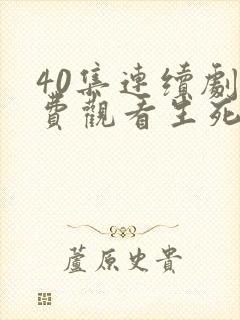 40集連續劇
費觀看生死
蘆原史貴